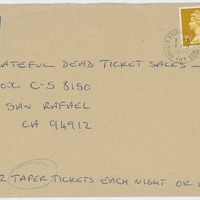 RATEFUL DEAD TICKET SALES -
OX C-S 8150
SAN RAFAEL
CA 94912
2 TAPER TICKETS EACH NIGHT OR